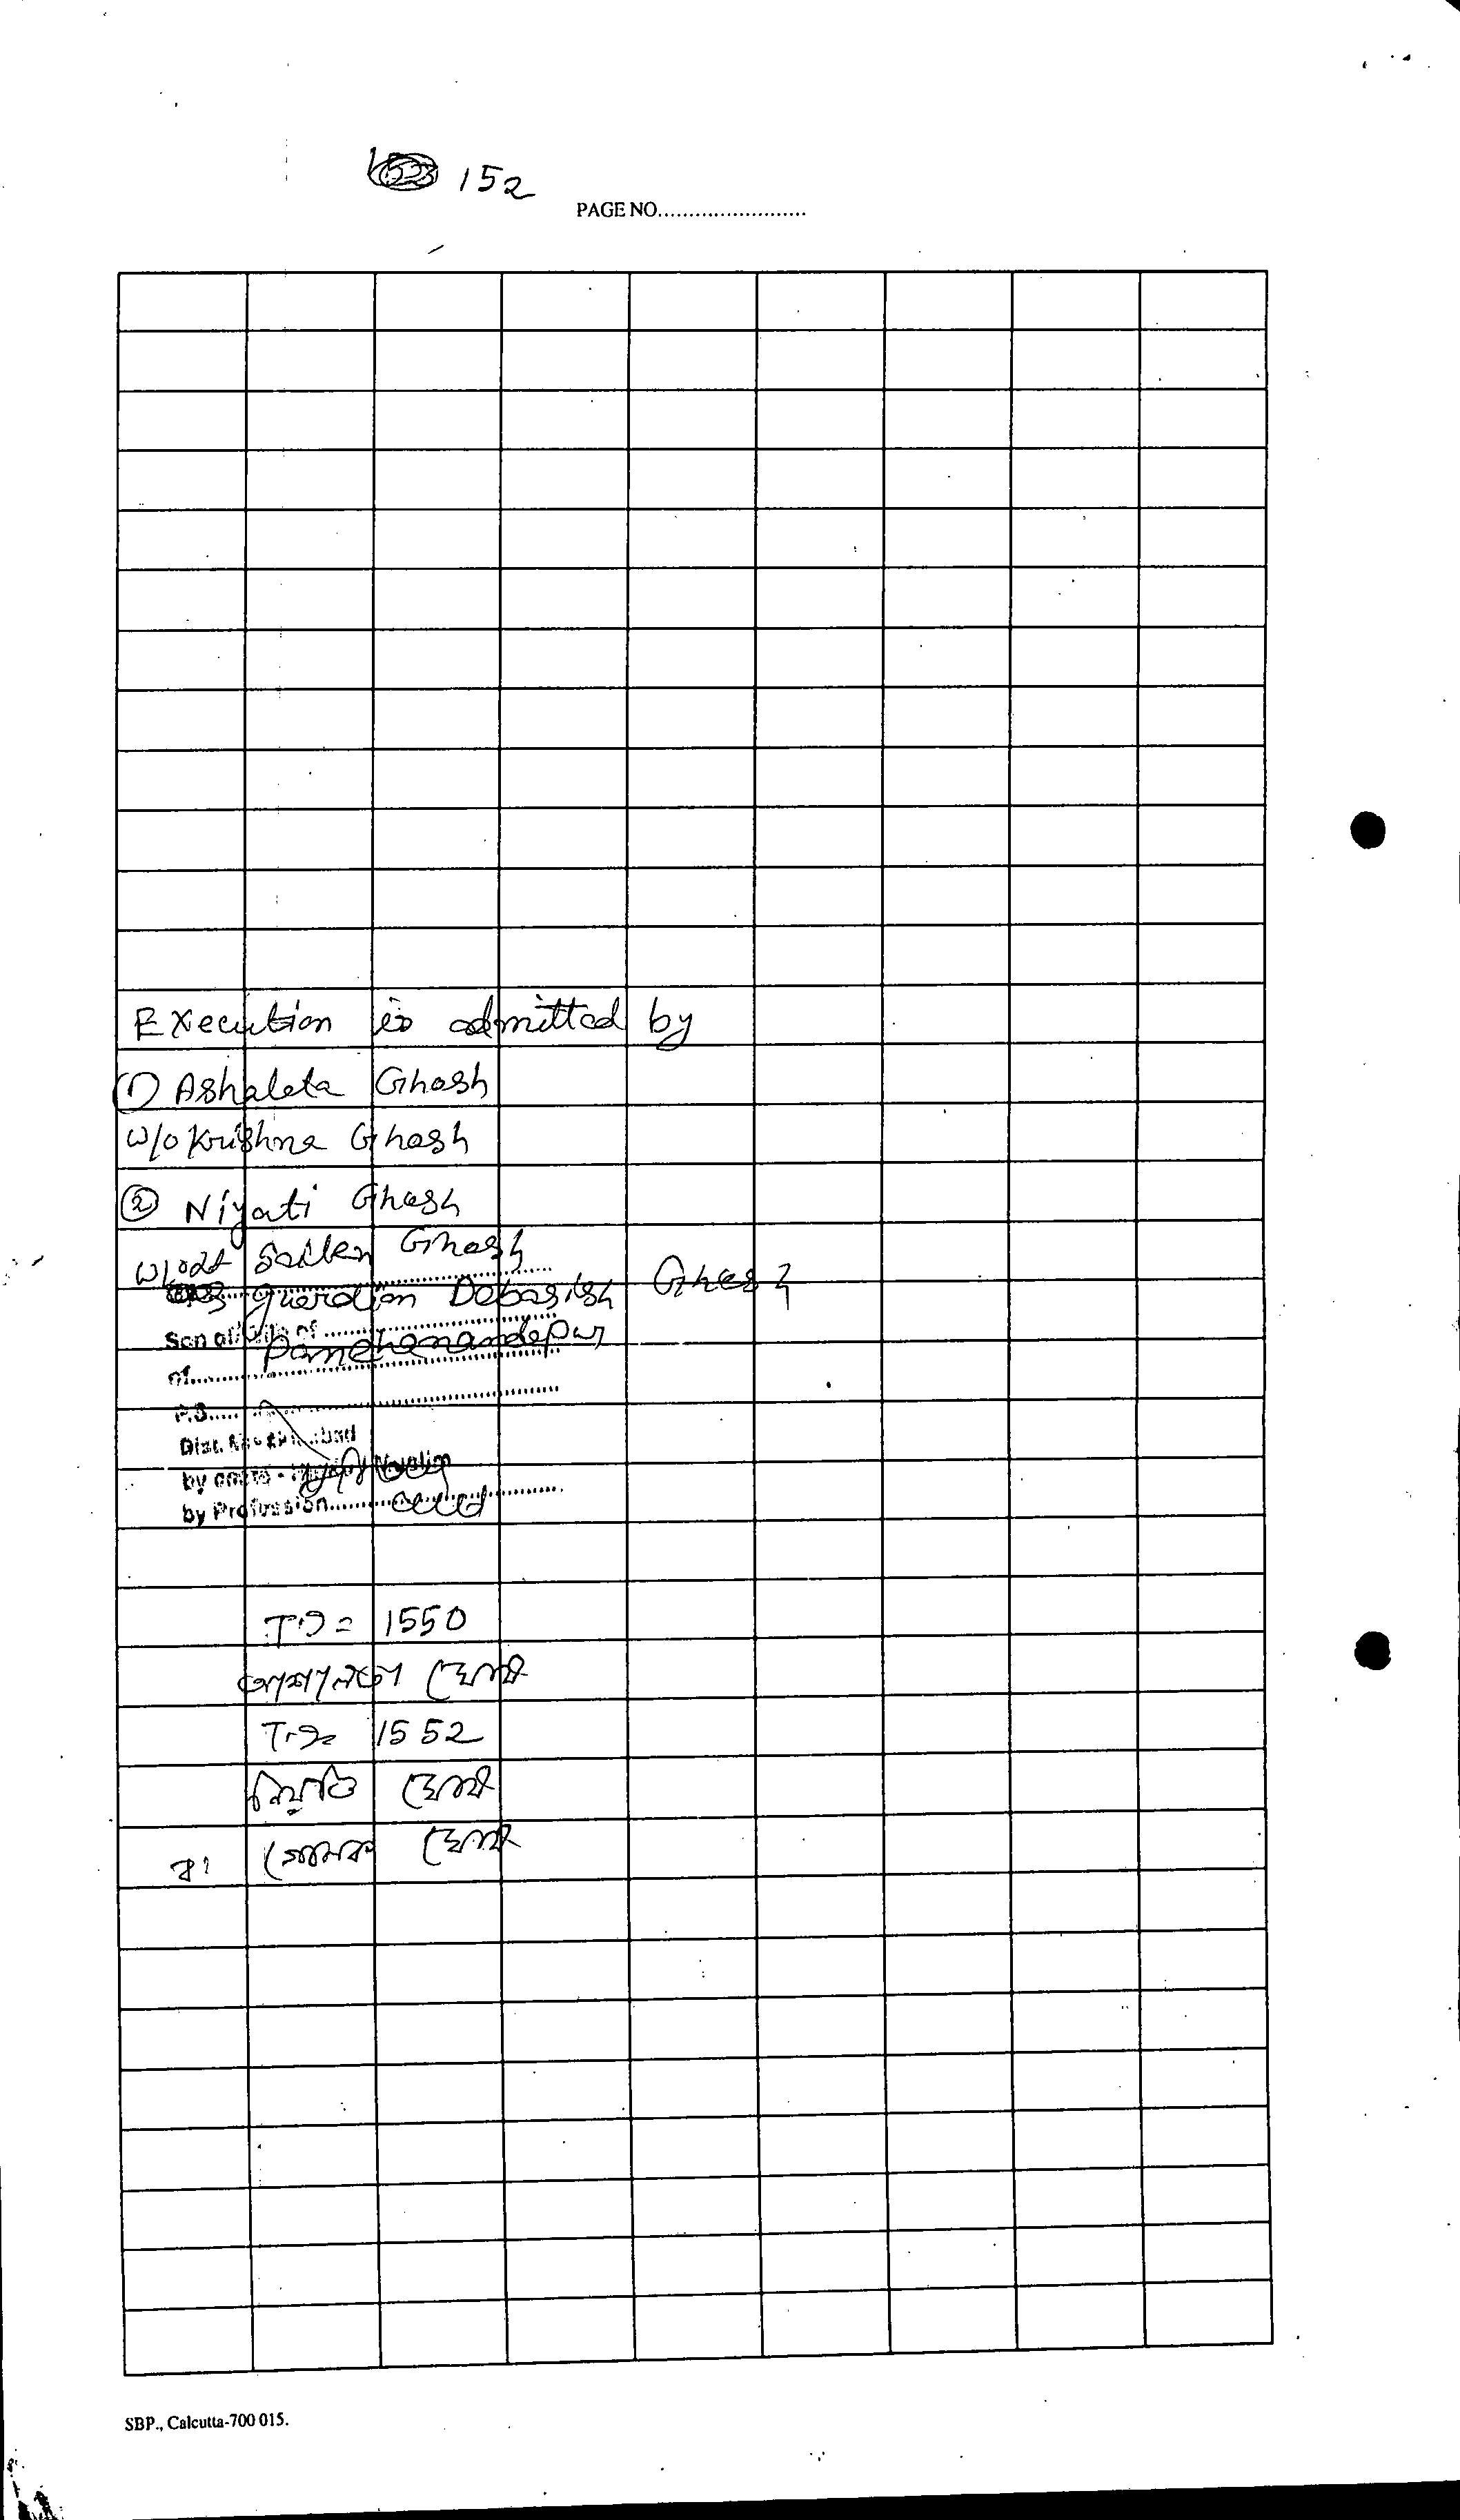 152
PAGE NO.........................
Execution is admitted by
① Ashalata Ghosh
W/o Krishna Ghosh
② Niyati Ghosh
Sailen Ghosh
guardian Debasish Ghosh
Son of/Wife of
of Panchanandapur
P.S.
Dist. Murshidabad
by caste - Muslim
by Profession
= 1550
আশালতা ঘোষ
1552
নিয়তি ঘোষ
ঘোষ
SBP., Calcutta-700 015.